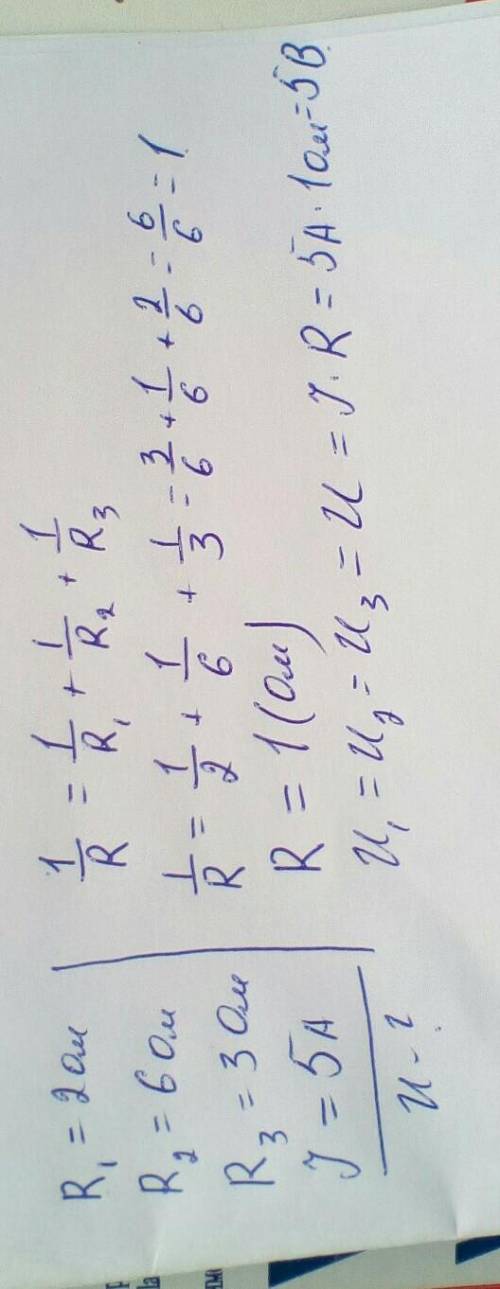 R₁ = 2 Ом
R₂ = 6 Ом
R₃ = 3 Ом
J = 5 А
U - ?
1/R = 1/R₁ + 1/R₂ + 1/R₃
1/R = 1/2 + 1/6 + 1/3 = 3/6 + 1/6 + 2/6 = 6/6 = 1
R = 1 (Ом)
U₁ = U₂ = U₃ = U = J · R = 5А · 1 Ом = 5 В.